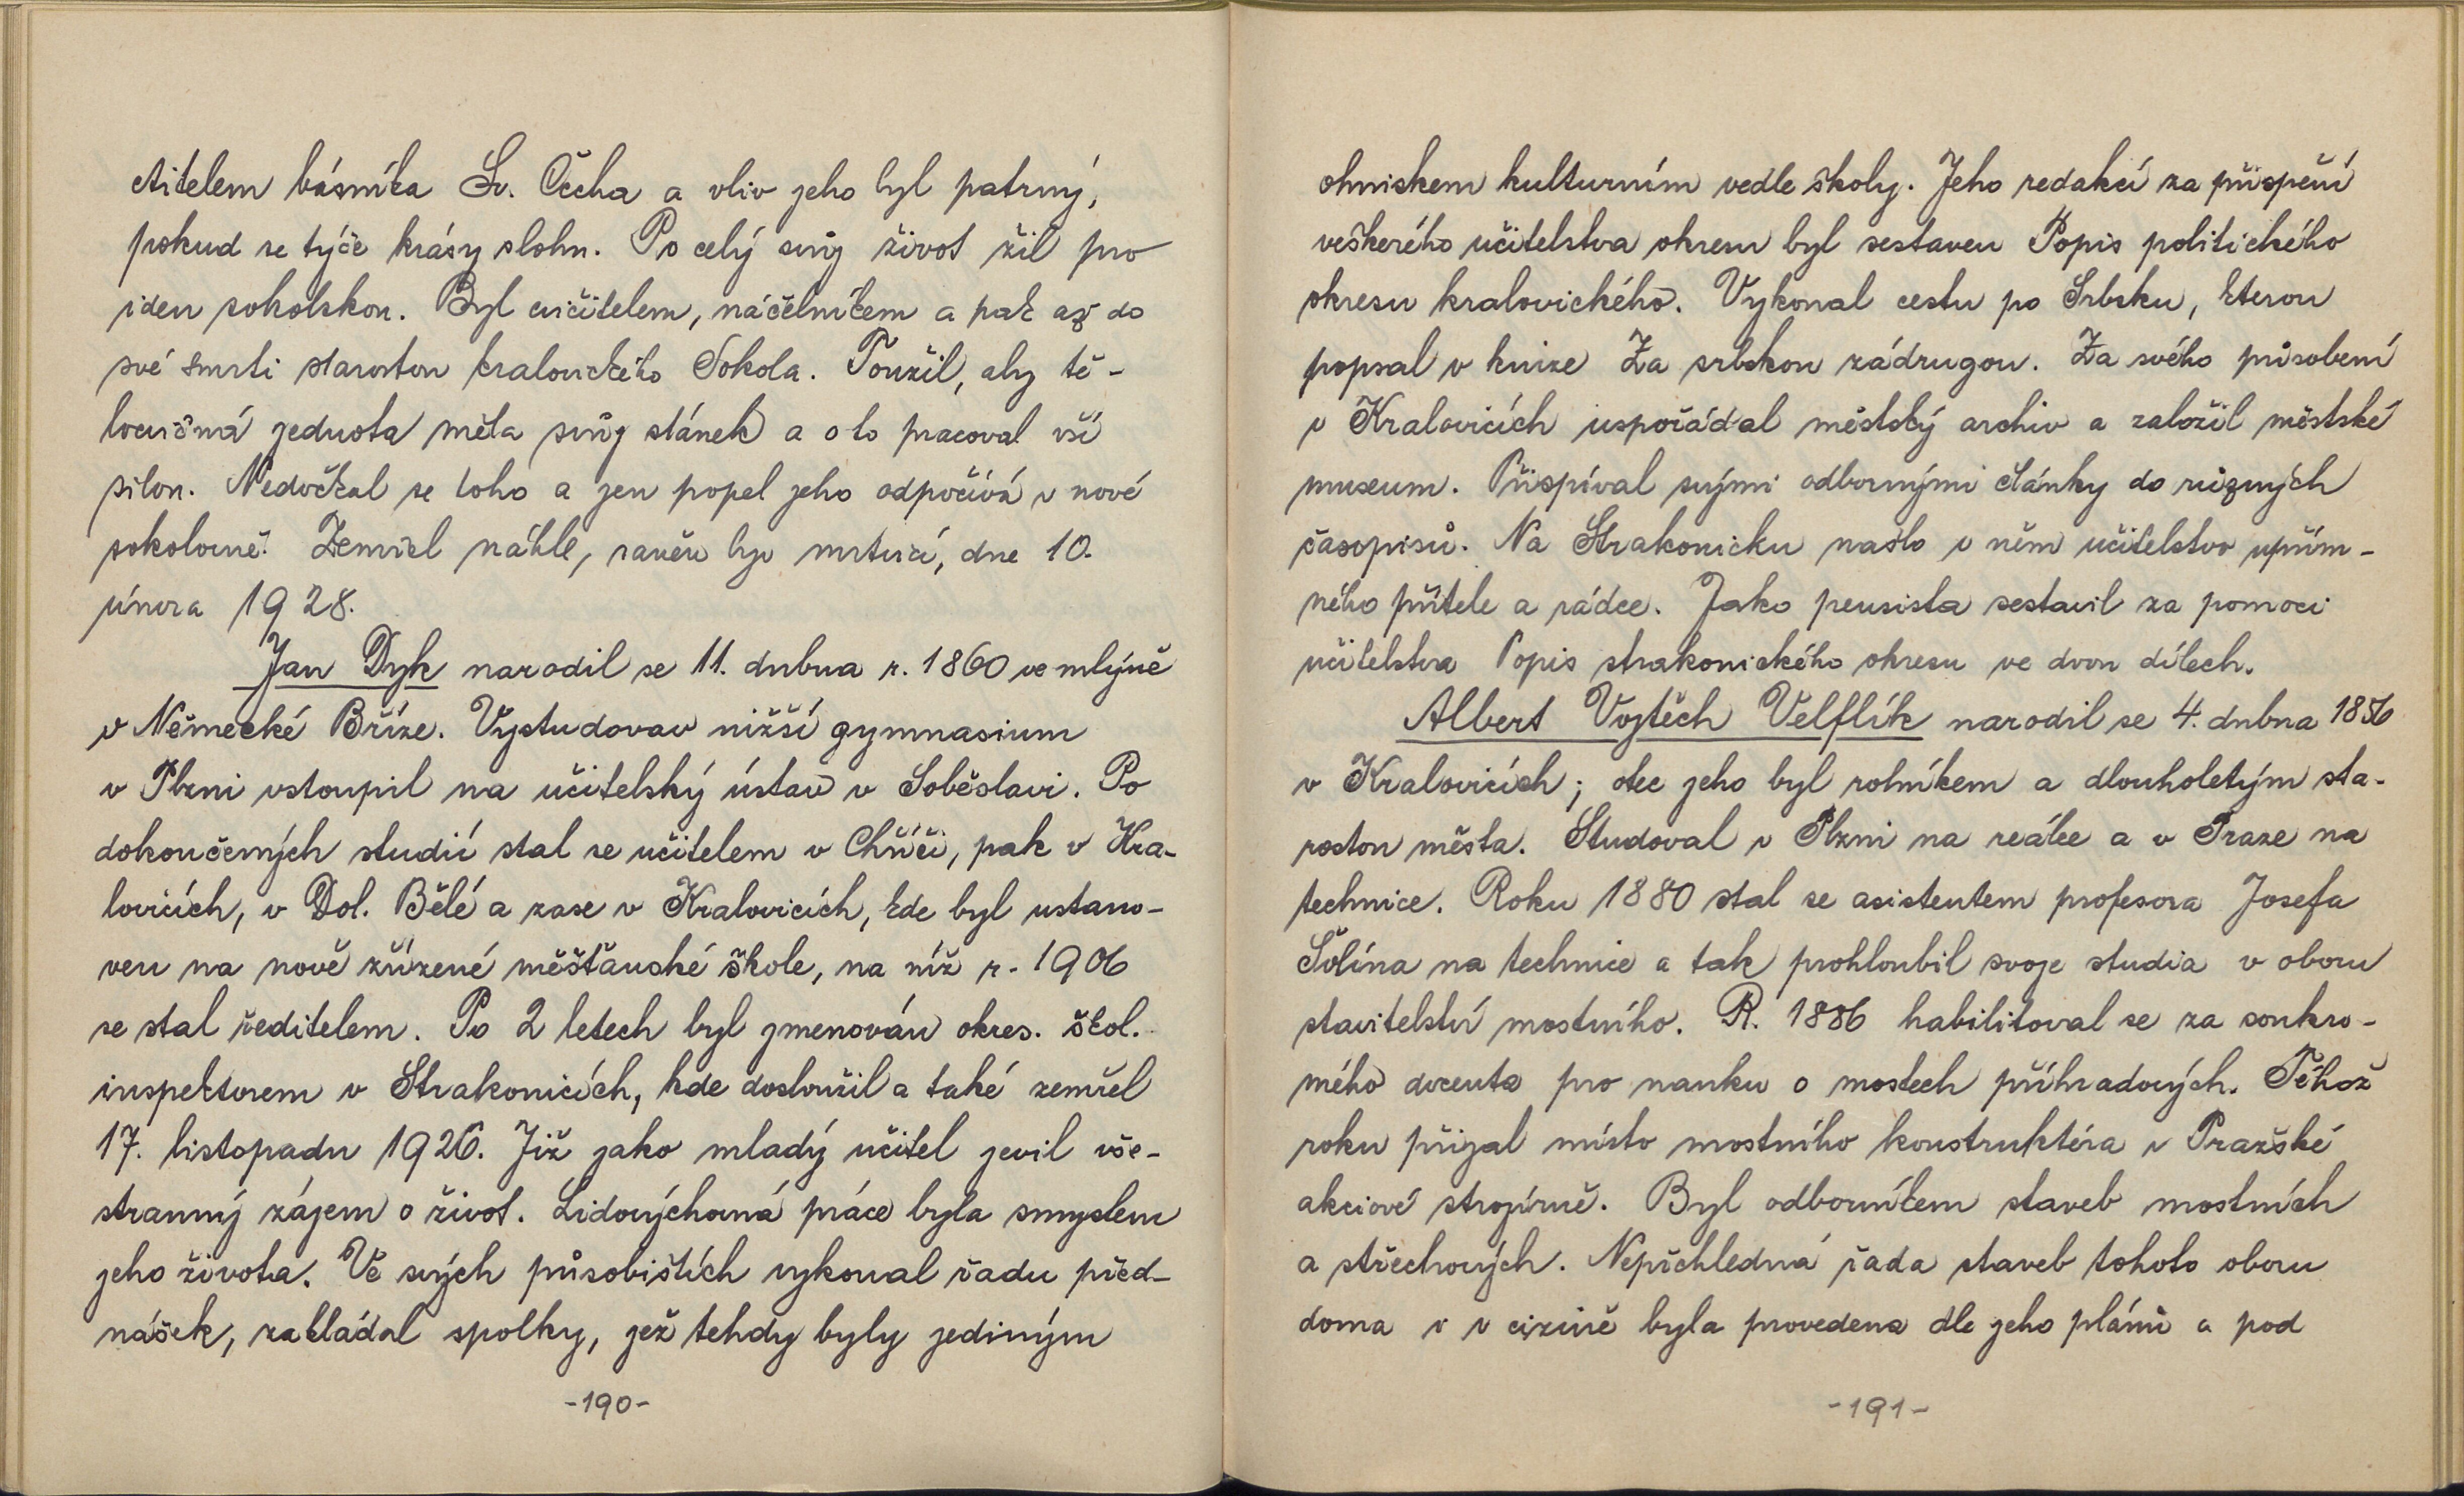 ctitelem básníka Sv. Čecha a vliv jeho byl patrný,
pokud se týče krásy slohu. Po celý svůj život žil pro
ideu sokolskou. Byl cvičitelem, náčelníkem a pak až do
své smrti starostou kralovického Sokola. Toužil, aby tě-
locvičná jednota měla svůj stánek a o to pracoval vší
silou. Nedočkal se toho a jen popel jeho odpočívá v nové
sokolovně. Zemřel náhle, raněn byv mrtvicí, dne 10.
února 1928.
Jan Dyk narodil se 11. dubna r. 1860 ve mlýně
v Německé Bříze. Vystudovav nižší gymnasium
v Plzni vstoupil na učitelský ústav v Soběslavi. Po
dokončených studií stal se učitelem v Chříči, pak v Kra-
lovicích, v Dol. Bělé a zase v Kralovicích, kde byl ustano-
ven na nově zřízené měšťanské škole, na níž r. 1906
se stal ředitelem. Po 2 letech byl jmenován okres. škol.
inspektorem v Strakonicích, kde dosloužil a také zemřel
17. listopadu 1926. Již jako mladý učitel jevil vše-
stranný zájem o život. Lidovýchovná práce byla smyslem
jeho života. Ve svých působištích vykonal řadu před-
nášek, zakládal spolky, jež tehdy byly jediným
-190-
ohniskem kulturním vedle školy. Jeho redakcí za přispění
veškerého učitelstva okresu byl sestaven Popis politického
okresu kralovického. Vykonal cestu po Srbsku, kterou
popsal v knize Za srbskou zádrugou. Za svého působení
v Kralovicích uspořádal městský archiv a založil městské
museum. Přispíval svými odbornými články do různých
časopisů. Na Strakonicku našlo v něm učitelstvo upřím-
ného přítele a rádce. Jako pensista sestavil za pomoci
učitelstva Popis strakonického okresu ve dvou dílech.
Albert Vojtěch Velflík narodil se 4. dubna 1856
v Kralovicích; otec jeho byl rolníkem a dlouholetým sta-
rostou města. Studoval v Plzni na reálce a v Praze na
technice. Roku 1880 stal se asistentem profesora Josefa
Šolína na technice a tak prohloubil svoje studia v oboru
stavitelství mostního. R. 1886 habilitoval se za soukro-
mého docenta pro nauku o mostech příhradových. Téhož
roku přijal místo mostního konstruktéra v Pražské
akciové strojírně. Byl odborníkem staveb mostních
a střechových. Nepřehledná řada staveb tohoto oboru
doma i v cizině byla provedena dle jeho plánů a pod
-191-